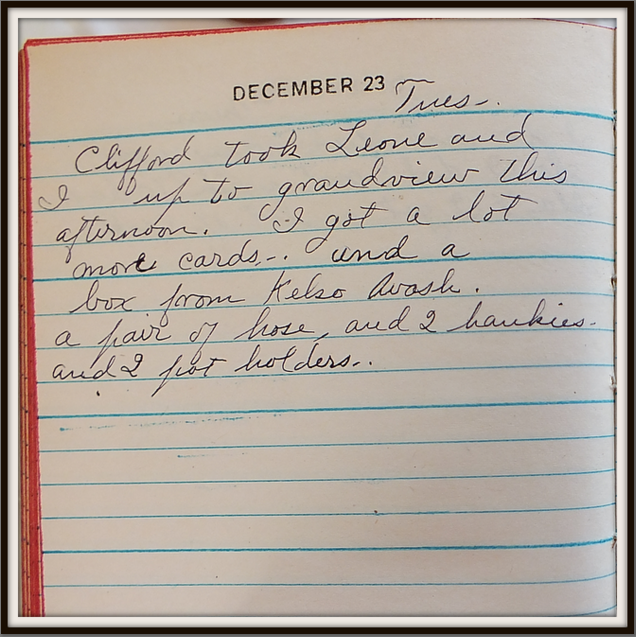 DECEMBER 23 Tues-.
Clifford took Leone and
I up to grandview this
afternoon. I got a lot
more cards-. and a
box from Kelso Wash.
a pair of hose, and 2 hankies-
and 2 pot holders-.